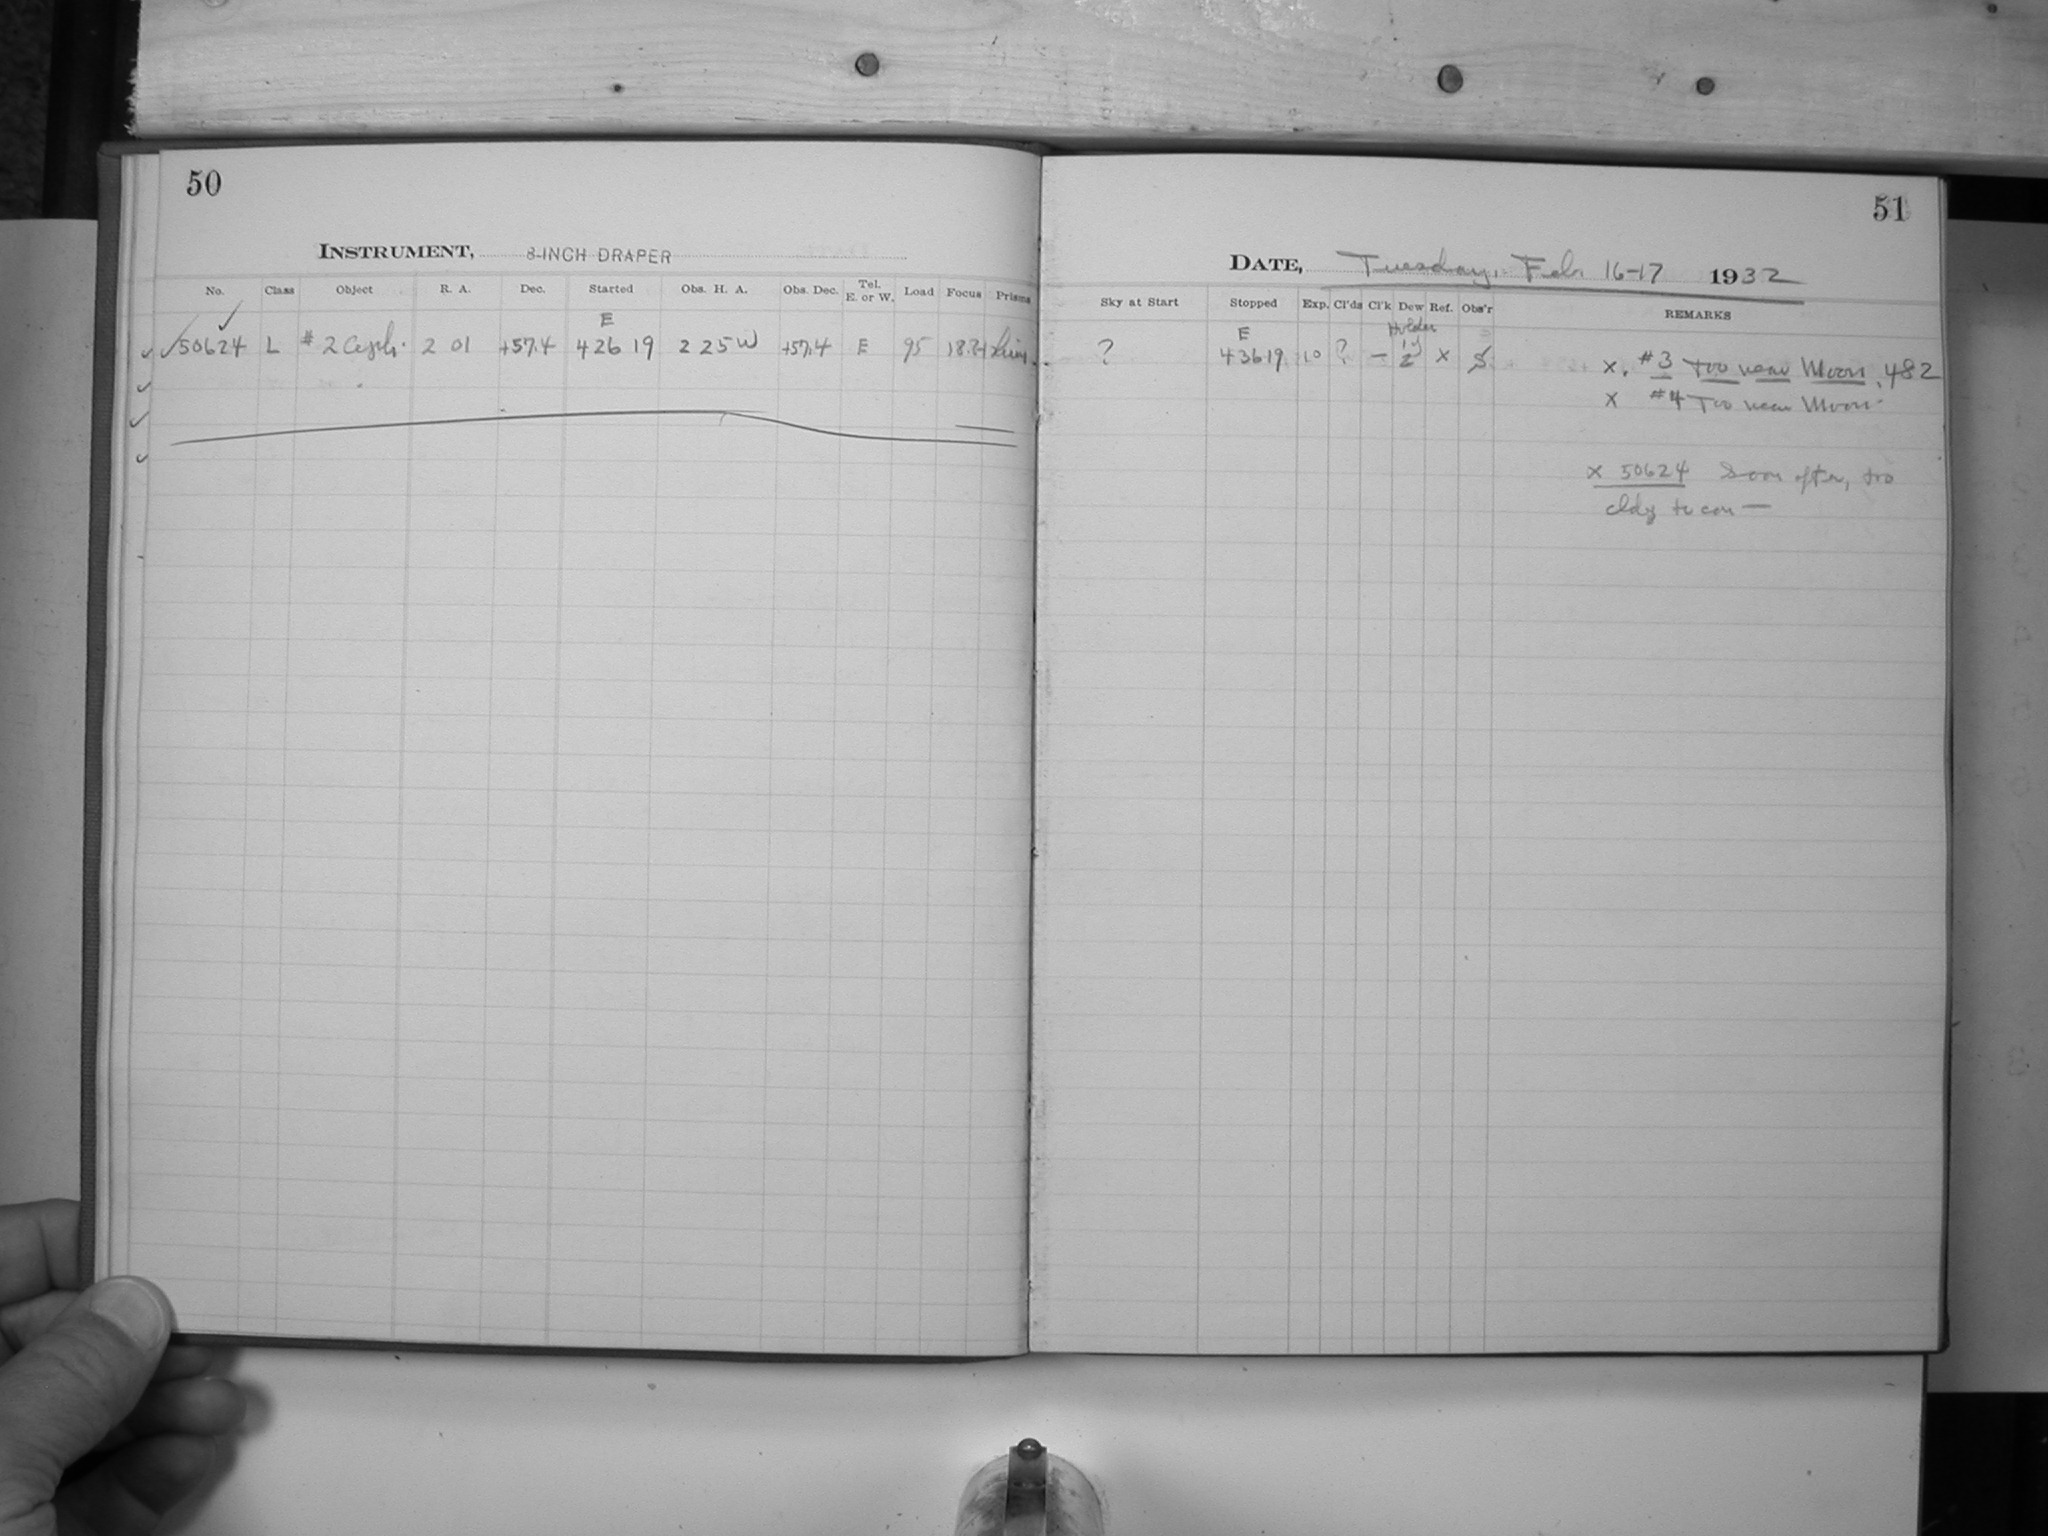 50
INSTRUMENT, 8-INCH DRAPER
No. Class Object R. A. Dec. Started Obs. H. A. Obs. Dec. Tel. E. or W. Load Focus Prisms
E
50624 L # 2 Ceph. 2 01 +57.4 4 26 19 2 25 W +57.4 E 95
51
DATE, Tuesday, Feb. 16-17 1932
Sky at Start Stopped Exp. Cl'ds Cl'k Dew Ref. Obs'r REMARKS
E Holder
? 4 36 19 10 ? — 2 x S x. #3 Too near Moon .482
x #4 Too near Moon
x 50624 Soon after, too
cldy to con —